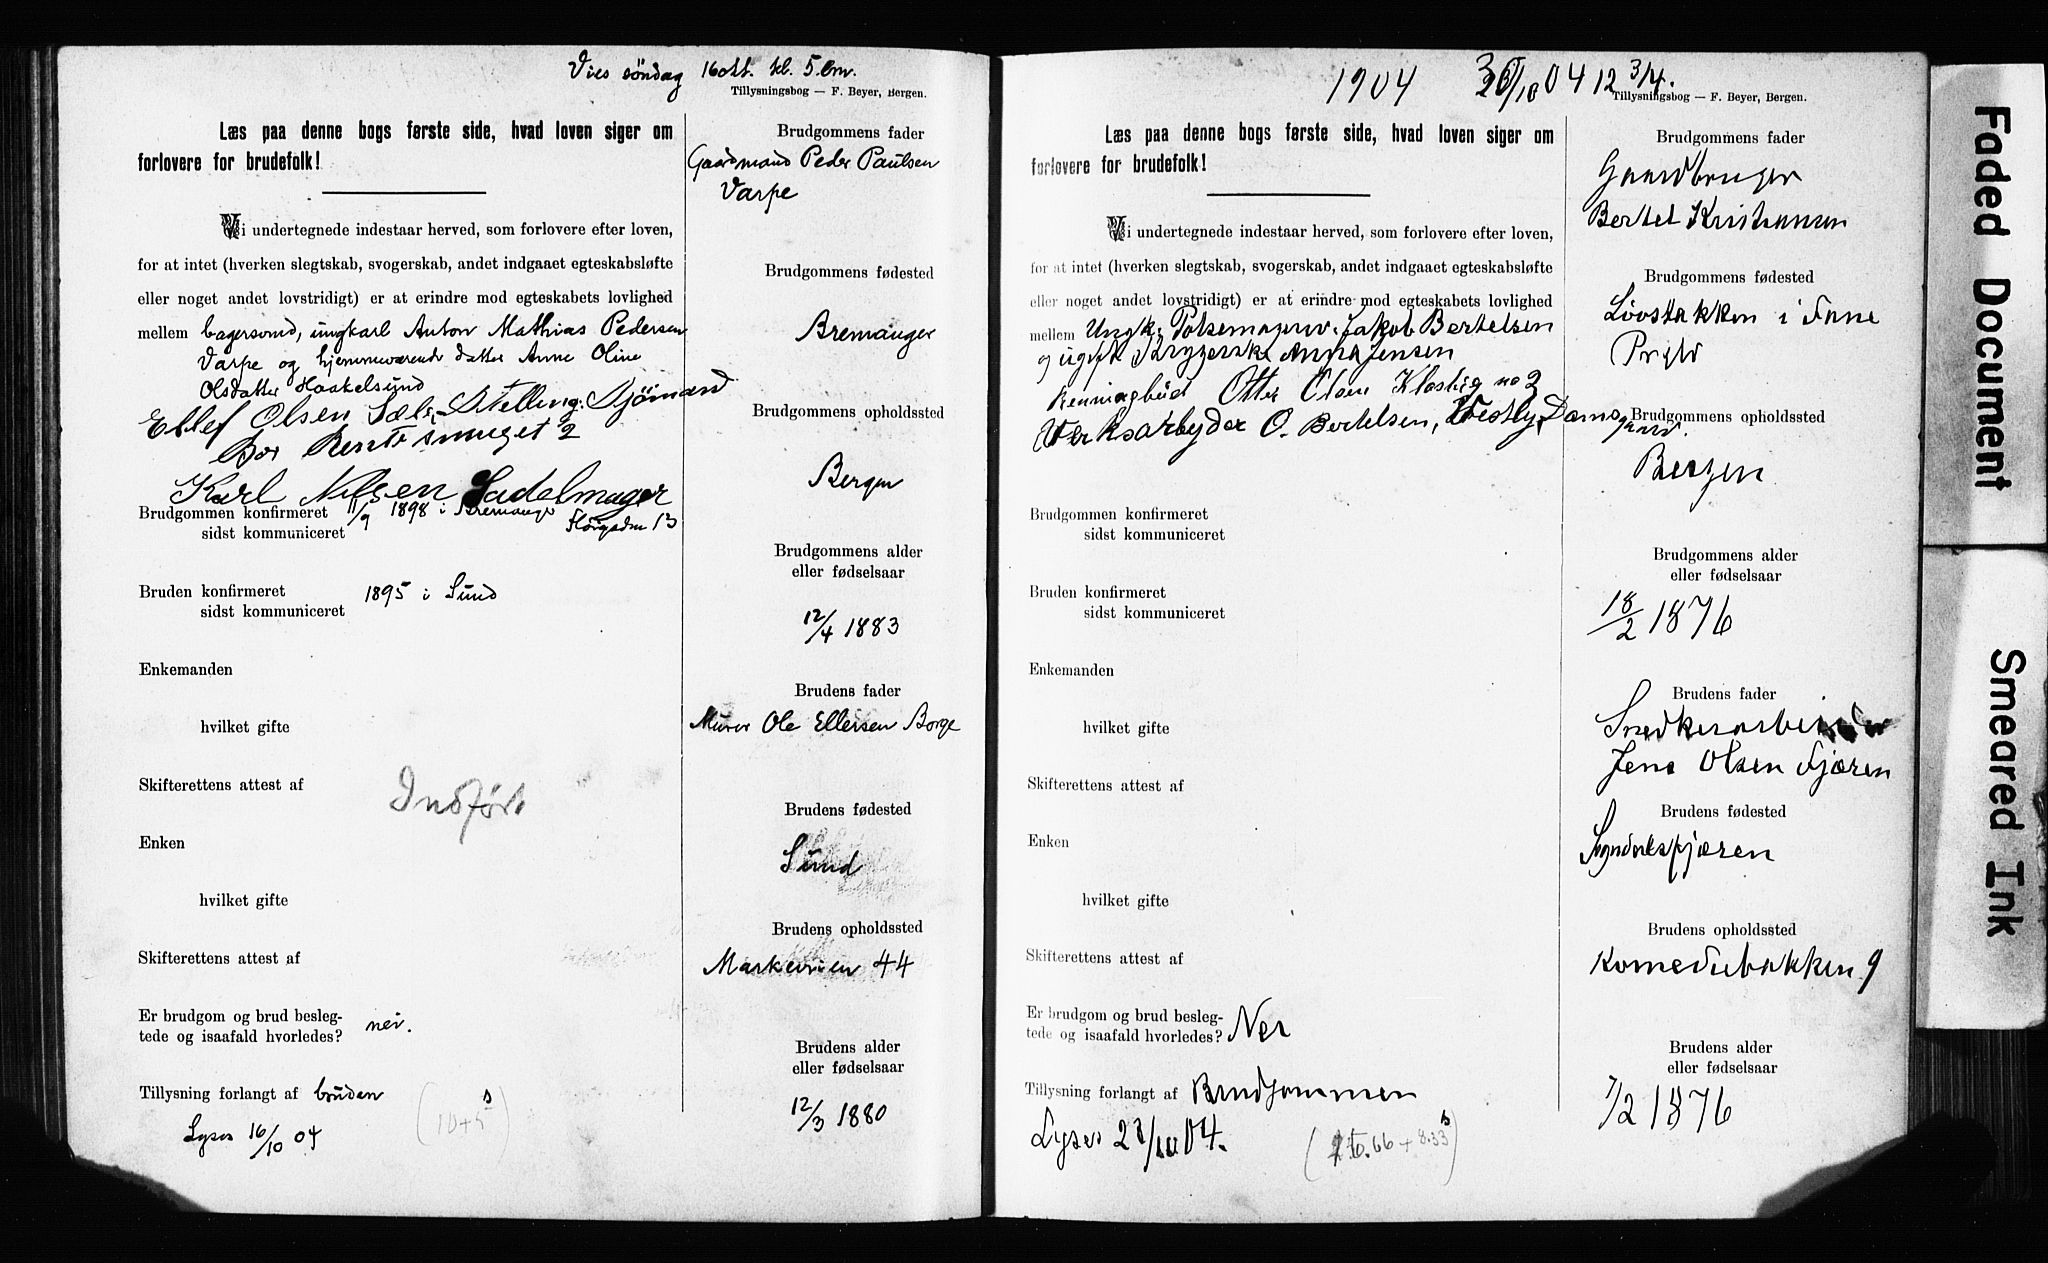 Vies söndag 16 okt. kl. 5. Em.
Tillysningsbog — F. Beyer, Bergen.
Læs paa denne bogs første side, hvad loven siger om
forlovere for brudefolk!
Vi undertegnede indestaar herved, som forlovere efter loven,
for at intet (hverken slegtskab, svogerskab, andet indgaaet egteskabsløfte
eller noget andet lovstridigt) er at erindre mod egteskabets lovlighed
mellem bagersvend, ungkarl Anton Mathias Pedersen
Varpe og hjemmeværende datter Anne Oline
Olsdatter Haakelsund
Ellef Olsen Sæle, Stelling: Sjömand
Bor smuget 2
Karl Nilsen Sadelmager
Brudgommen konfirmeret 11/9 1898 i Bremanger
13
sidst kommuniceret
Bruden konfirmeret 1895 i Sund
sidst kommuniceret
Enkemanden
hvilket gifte
Skifterettens attest af
Indført
Enken
hvilket gifte
Skifterettens attest af
Er brudgom og brud besleg-
tede og isaafald hvorledes? nei.
Tillysning forlangt af bruden
Lyses 16/10 04 (10+5s)
Brudgommens fader
Gaardmand Peder Paulsen
Varpe
Brudgommens fødested
Bremanger
Brudgommens opholdssted
Bergen
Brudgommens alder
eller fødselsaar
12/4 1883
Brudens fader
Murer Ole Ellersen Borge
Brudens fødested
Sund
Brudens opholdssted
Markeveien 44
Brudens alder
eller fødselsaar
12/3 1880
1904 30/10 04 12 3/4.
Tillysningsbog — F. Beyer, Bergen.
Læs paa denne bogs første side, hvad loven siger om
forlovere for brudefolk!
Vi undertegnede indestaar herved, som forlovere efter loven,
for at intet (hverken slegtskab, svogerskab, andet indgaaet egteskabsløfte
eller noget andet lovstridigt) er at erindre mod egteskabets lovlighed
mellem Ungk. Pølsemager Jakob Bertelsen
og ugift Anna Jensen
Otter Olsen no 2
Verksarbeyder O. Bertelsen, Vestly, Damsgaard.
Brudgommen konfirmeret
sidst kommuniceret
Bruden konfirmeret
sidst kommuniceret
Enkemanden
hvilket gifte
Skifterettens attest af
Enken
hvilket gifte
Skifterettens attest af
Er brudgom og brud besleg-
tede og isaafald hvorledes? Nei
Tillysning forlangt af Brudgommen
Lyses 23/10 04. (16.66 + 8.33s)
Brudgommens fader
Gaardbruger
Bertel Kristiansen
Brudgommens fødested
Løvstakken i Fane
Prgld
Brudgommens opholdssted
Bergen
Brudgommens alder
eller fødselsaar
18/2 1876
Brudens fader
Snedkerarbeider
Jens Olsen Fjæren
Brudens fødested
Sogndalsfjæren
Brudens opholdssted
Komediebakken 9
Brudens alder
eller fødselsaar
7/2 1876
Faded Document
Smeared Ink